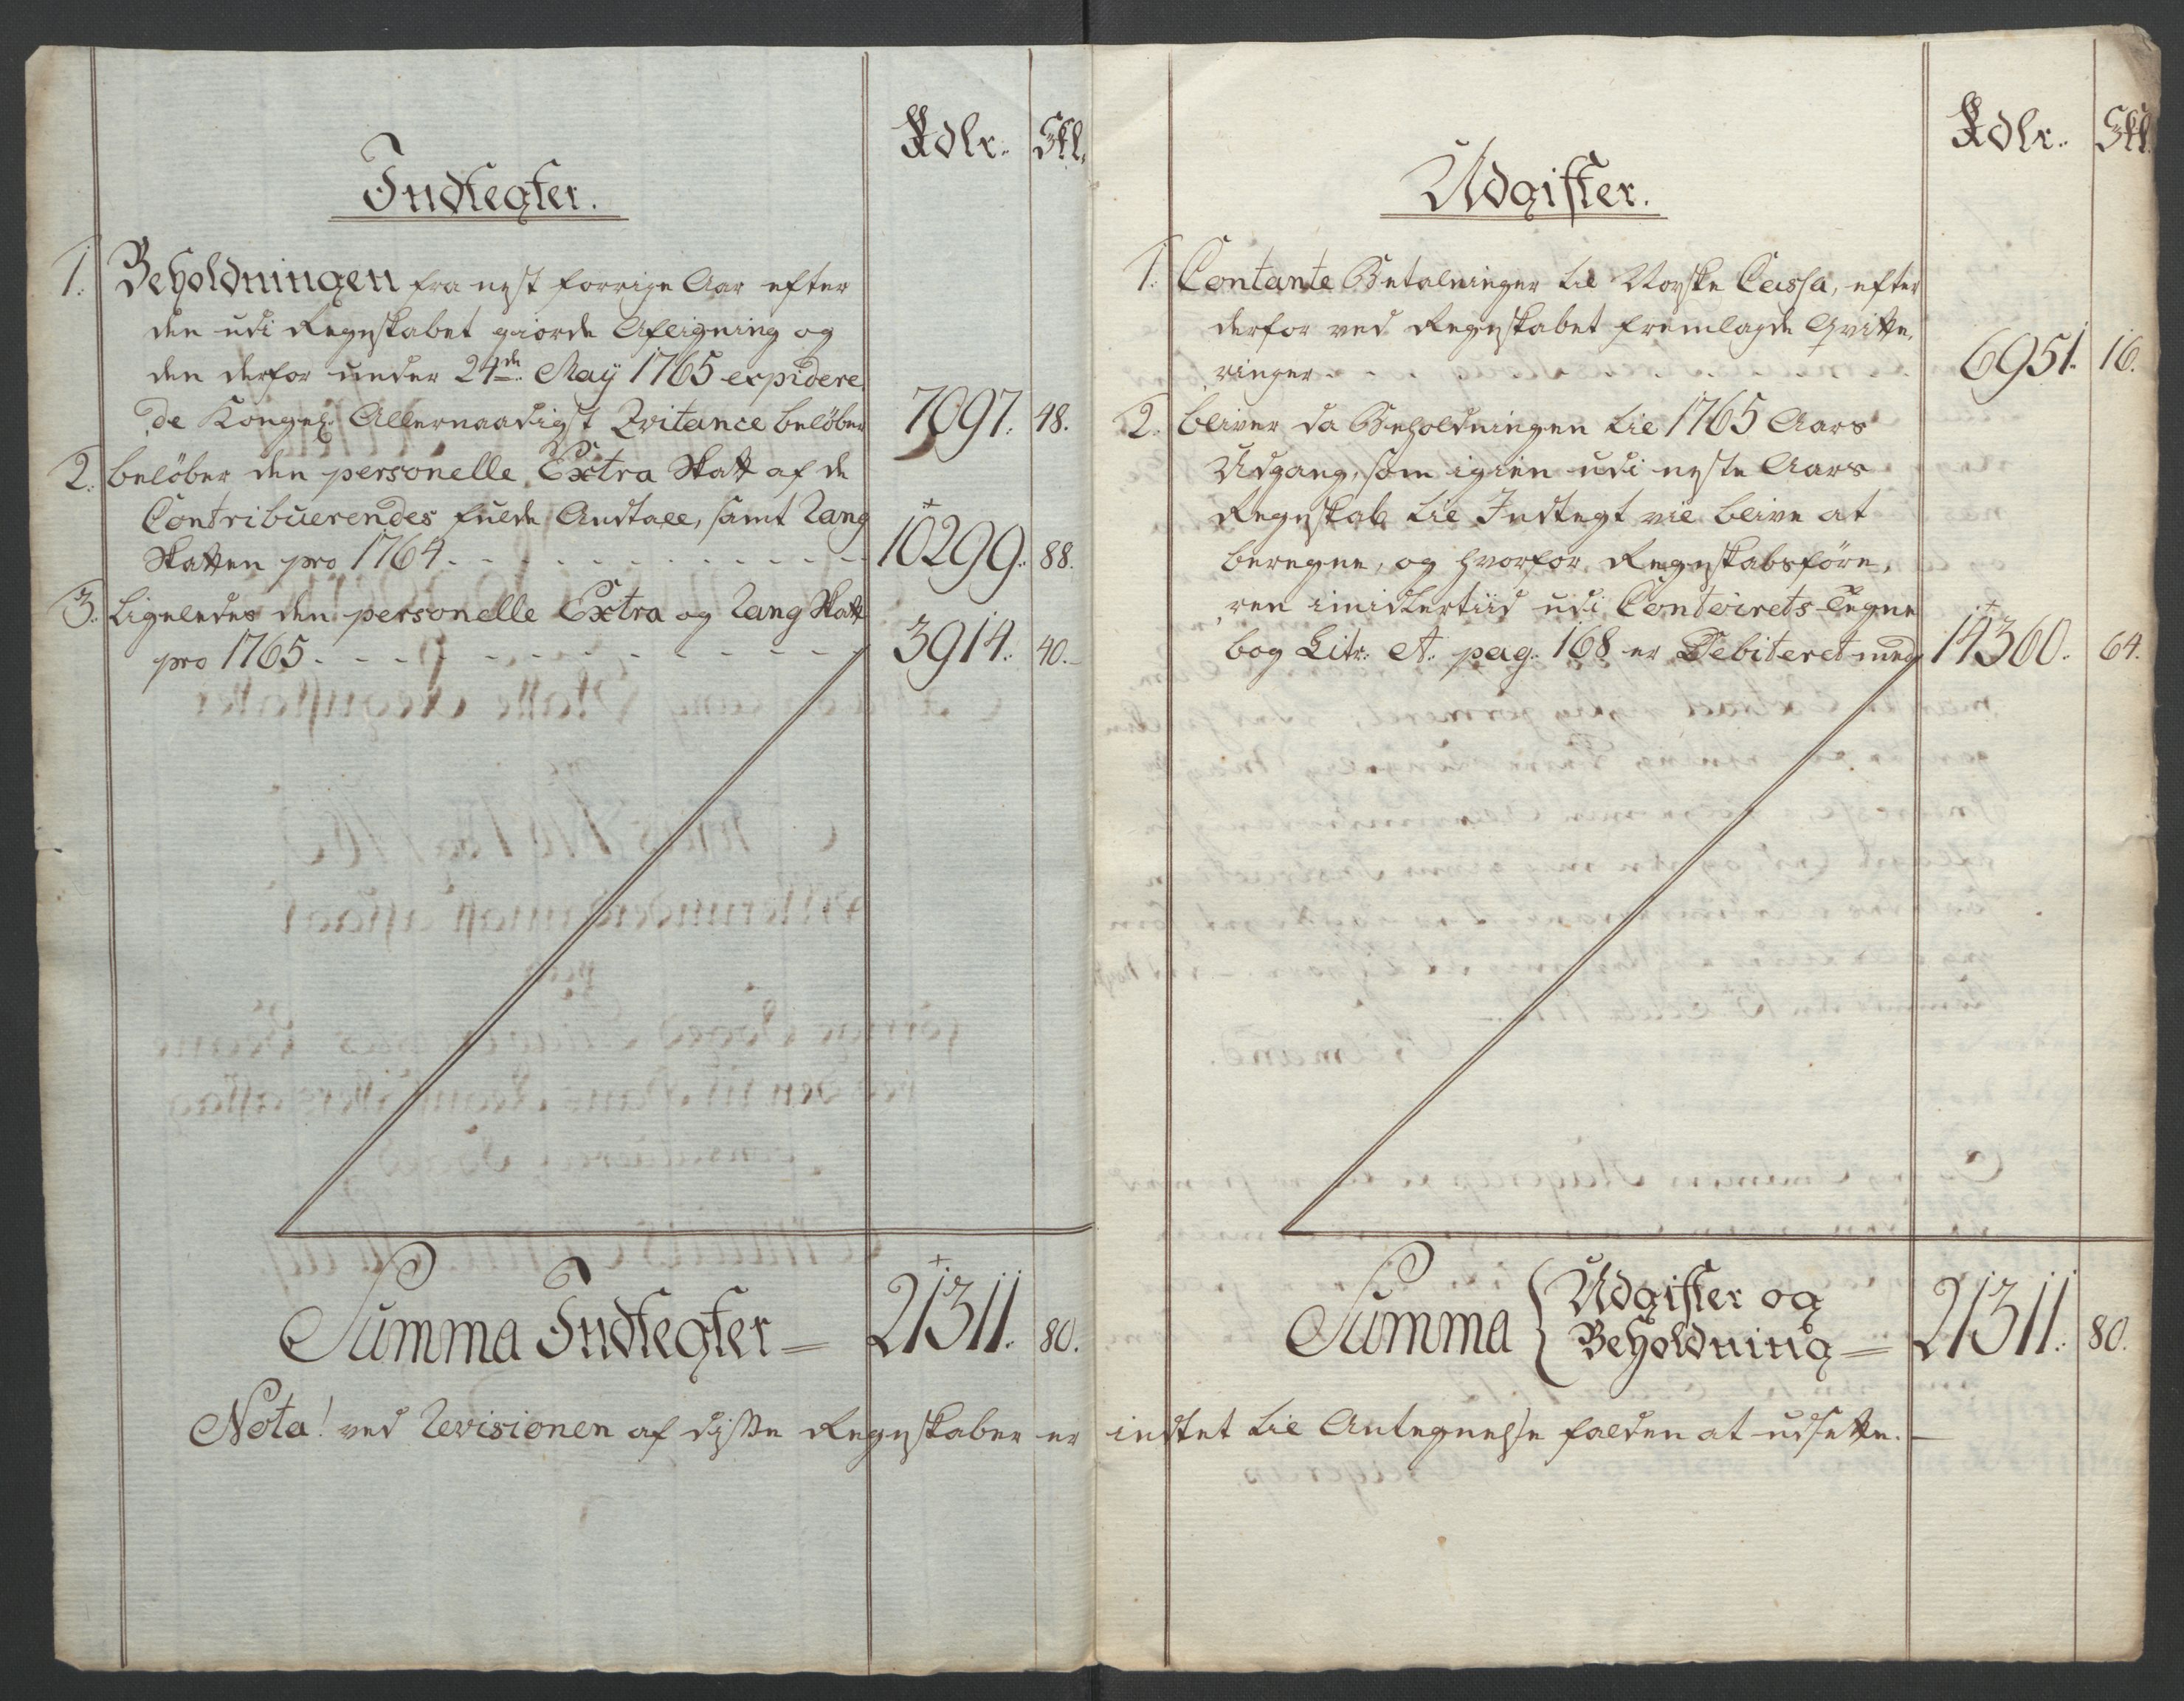 Rdlr. Skl.
Indtegter.
1. Beholdningen fra nest forrige Aar efter
den udi Regnskabet giorde Afeigning og
den derfor under 24de May 1765 expidere
de Kongel. Allernaadigst Qvitance beløber 7097. 48.
2. beløber den personelle Extra Skatt af de
Contribuerendes fulde Andtall, samt Rang
Skatten pro 1764. - - - 10299. 88.
3. Ligeledes den personelle Extra og Rang Skatt
pro 1765. - - - 3914. 40.
Summa Indtegter = 21311. 80.
Rdlr. Skl.
Udgifter.
1. Contante Betalninger til Norske Cassa, efter
derfor ved Regnskabet fremlagde Qvitte,
ringer - - - 6951. 16.
2. bliver da Beholdningen til 1765 Aars
Udgang, som igien udi neste Aars
Regnskab til Indtegt vil blive at
beregne, og hvorfor Regnskabsføre,
ren imidlertiid udi Contoirets Tegne
bog Litr: A. pag. 168 er Debiteret med 14360. 64.
Summa { Udgifter og
Beholdning = 21311. 80.
Nota! ved Revisionen af disse Regnskaber er indtet til Antegnelse falden at udsette.